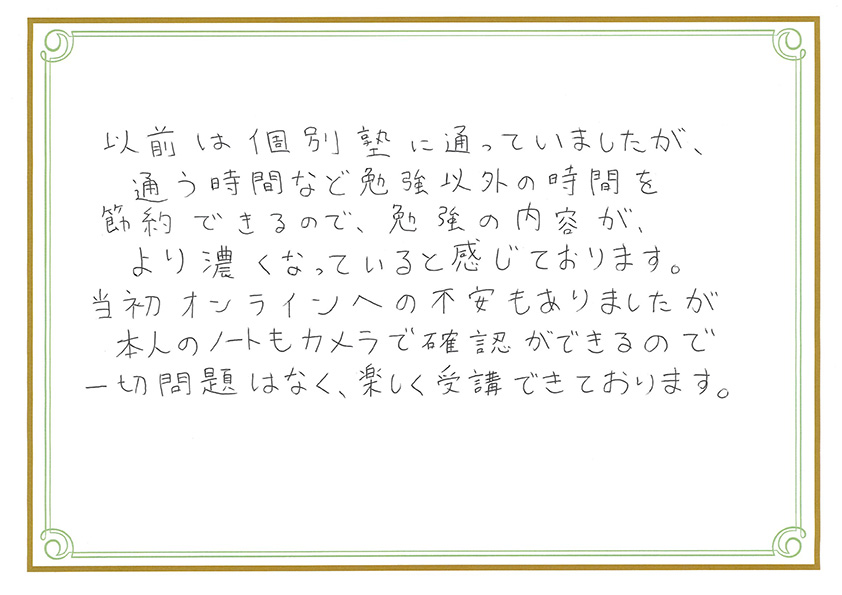 以前は個別塾に通っていましたが、
通う時間など勉強以外の時間を
節約できるので、勉強の内容が、
より濃くなっていると感じております。
当初オンラインへの不安もありましたが
本人のノートもカメラで確認ができるので
一切問題はなく、楽しく受講できております。